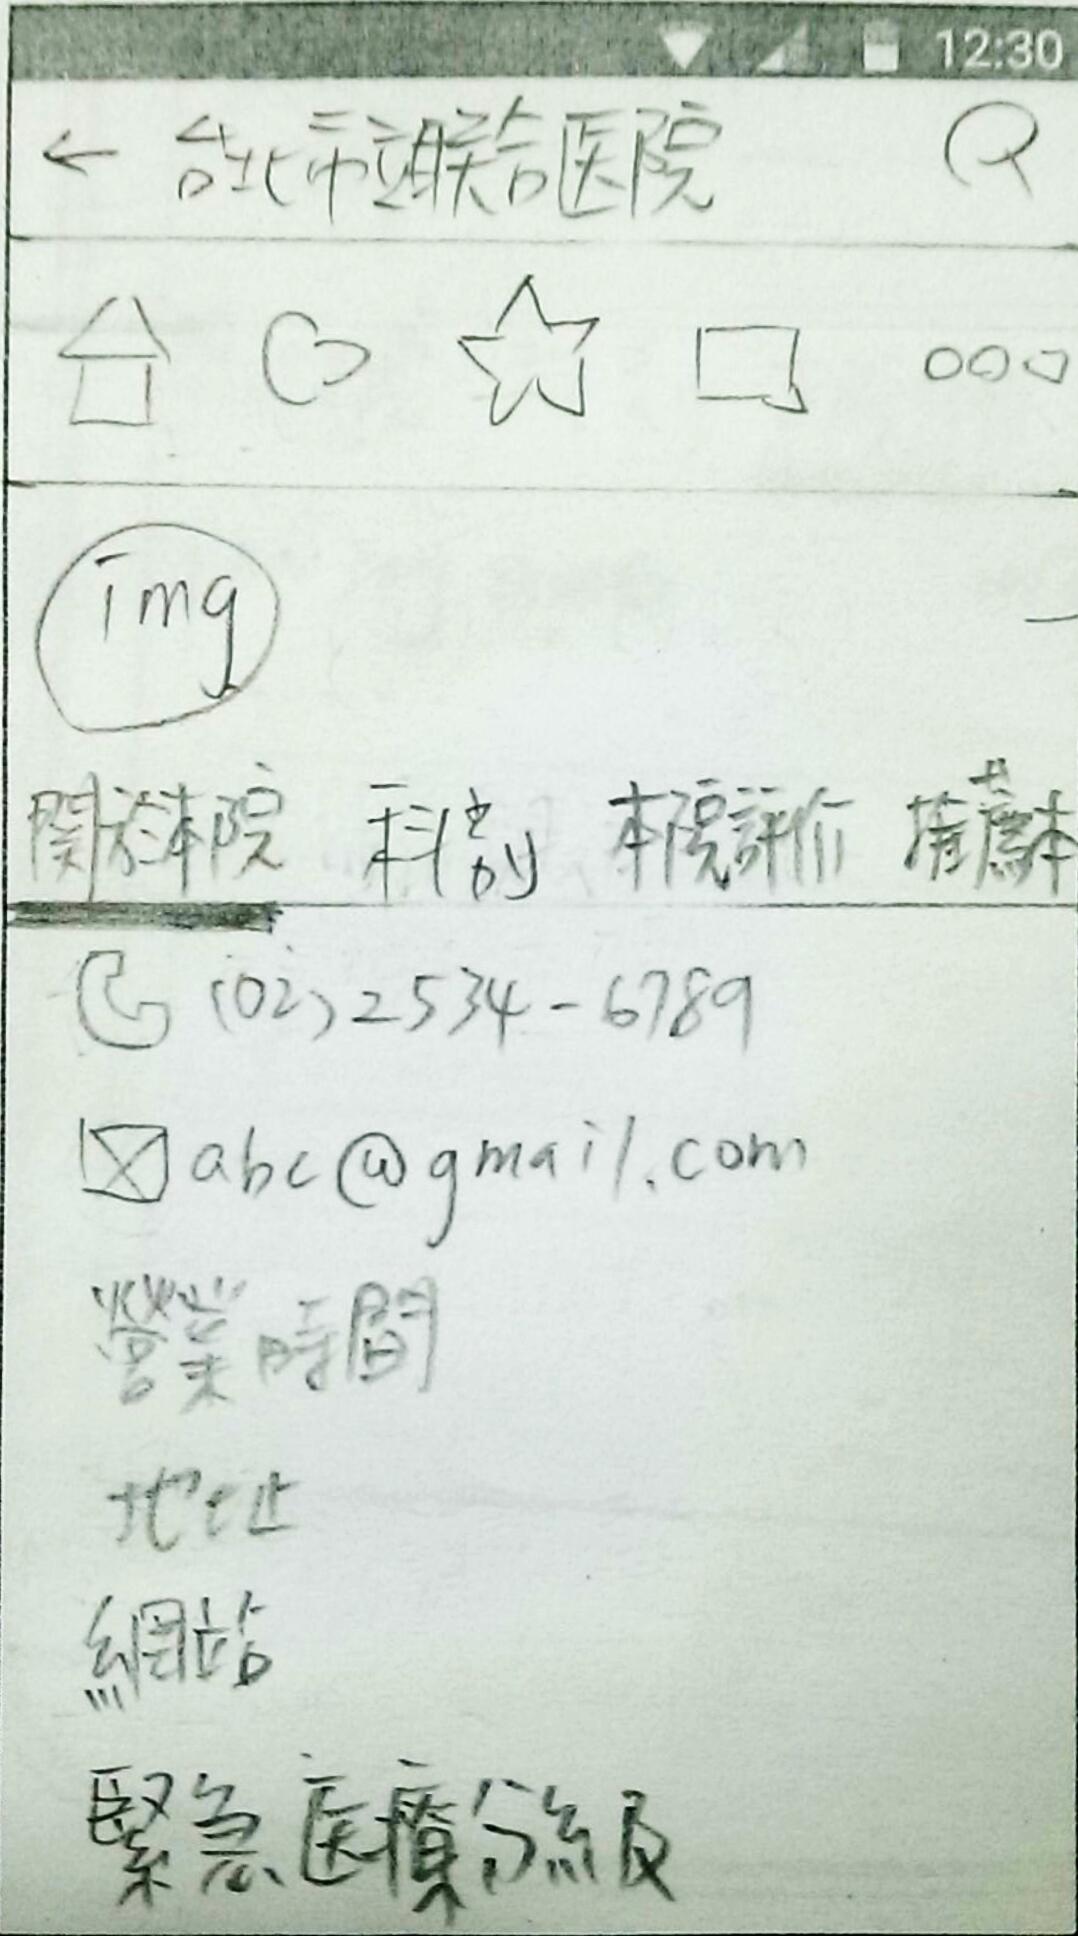 12:30
台北市立联合医院
img
関於本院 科别 本院評价 推薦本
(02)2534-6789
abc@gmail.com
營業時間
地址
網站
緊急医療分級